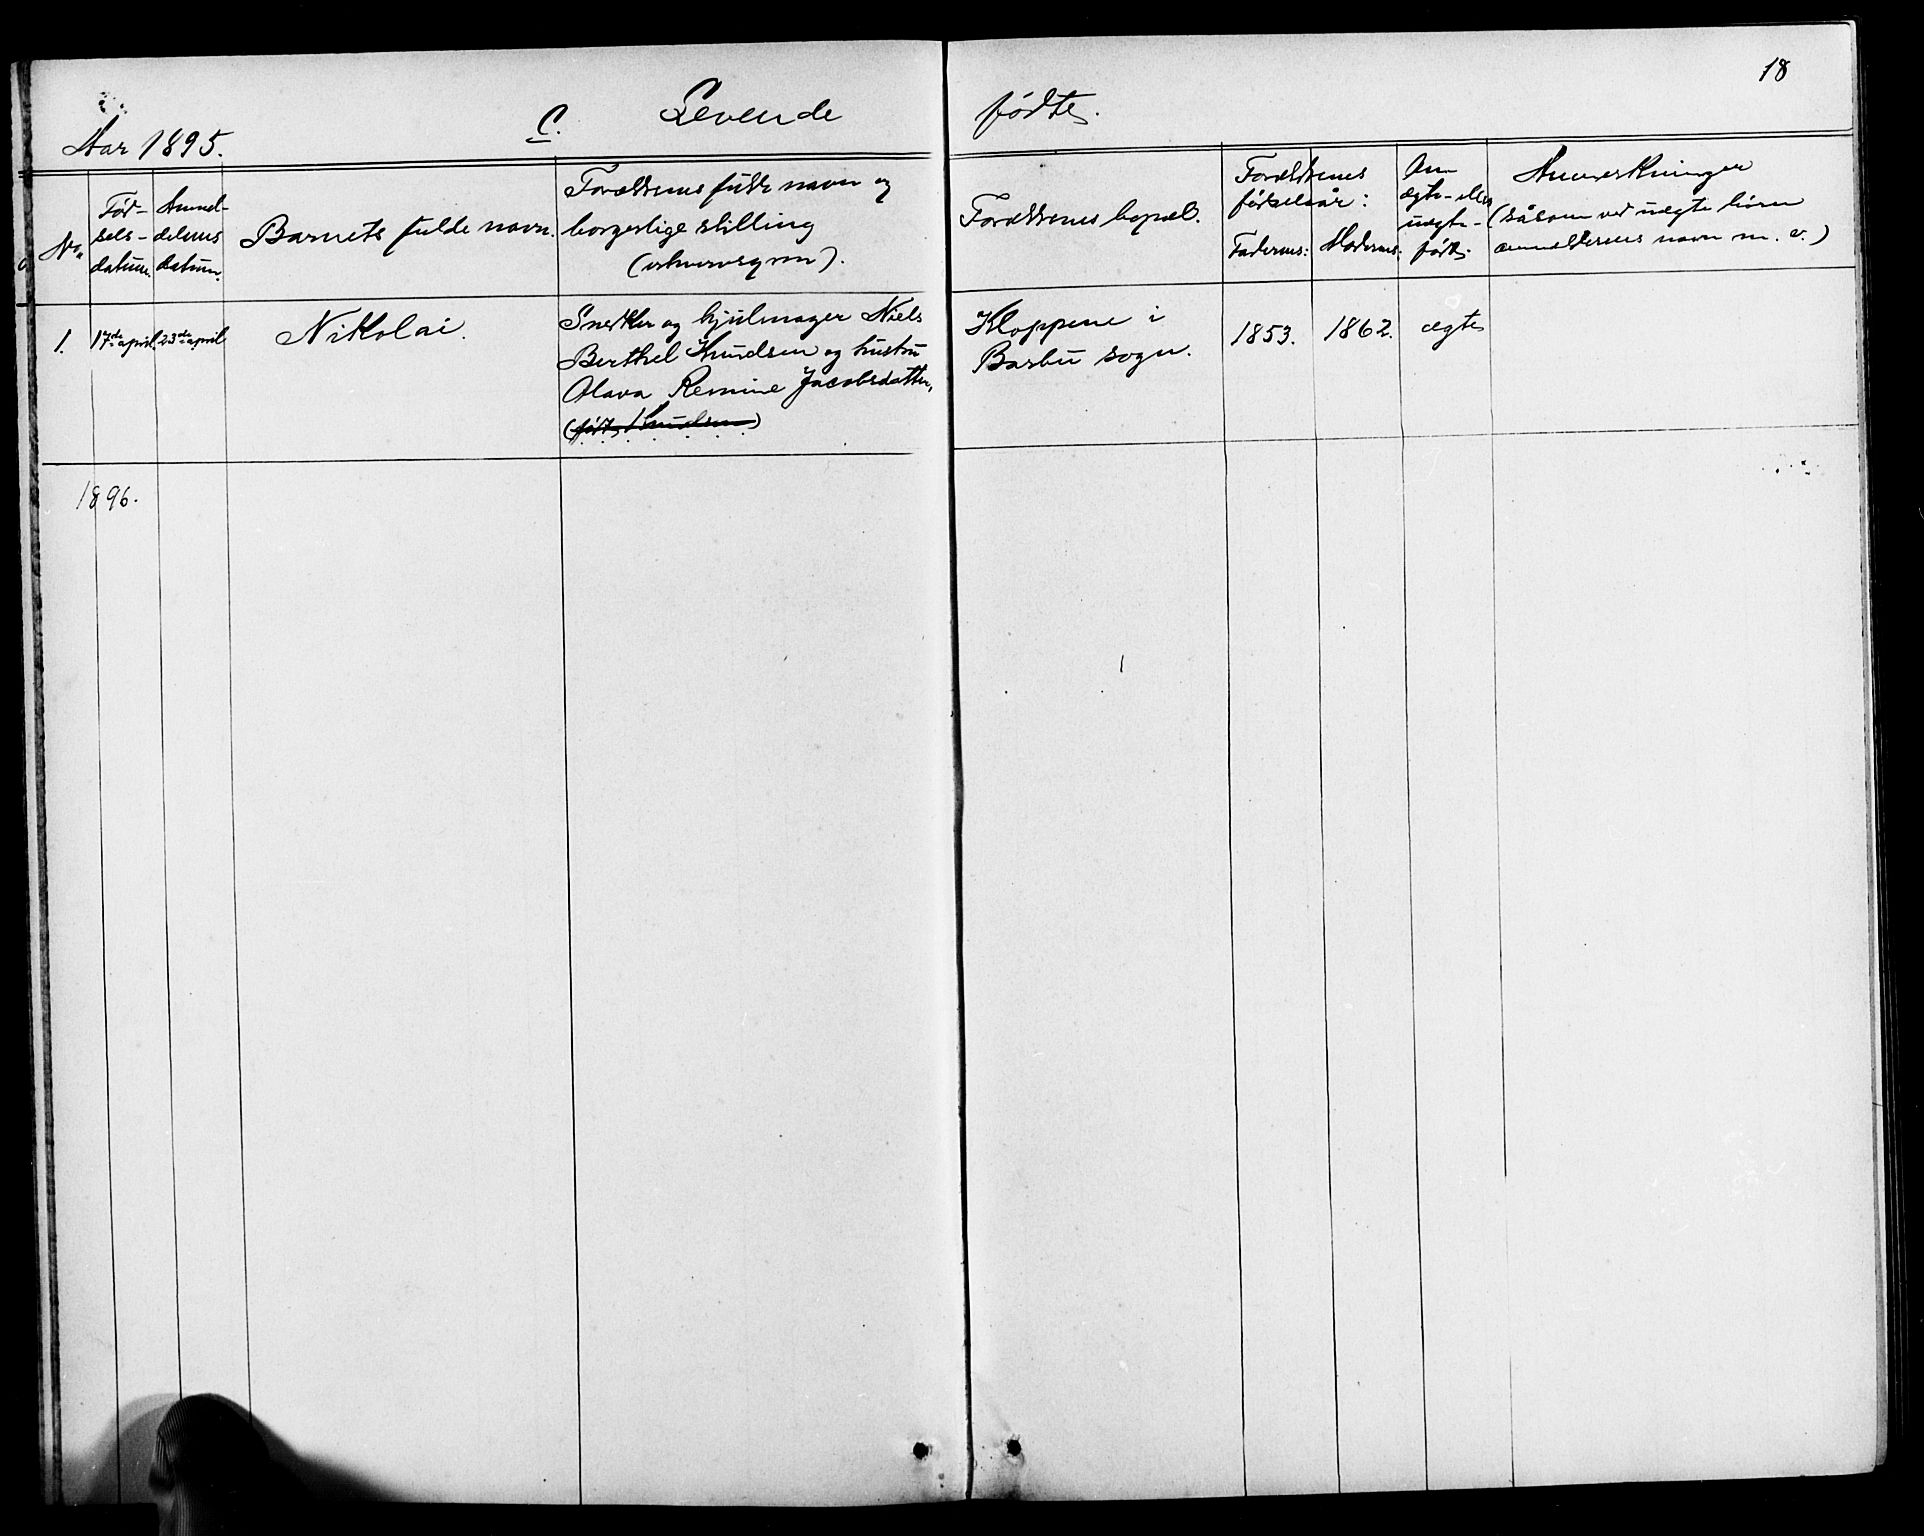 18
C. Levende fødte.
Aar 1895.
No.
Fød-
sels-
datum.
Anmel-
delsens
datum.
Barnets fulde navn.
Forældrenes fulde navn og
borgerlige stilling
(erhvervsgren).
Forældrenes bopæl.
Forældrenes
fødselsår:
Faderens:
Moderens:
Om
ægte- eller
uægte-
født.
Anmerkninger
(såsom ved uægte børn
anmelderens navn m. v.)
1.
17de april
23de april
Nikolai.
Snedker og hjulmager Niels
Berthel Knudsen og hustru
Olava Remine Jacobsdatter,
(født Knudsen)
Kloppene i
Barbu sogn.
1853.
1862.
ægte
1896.